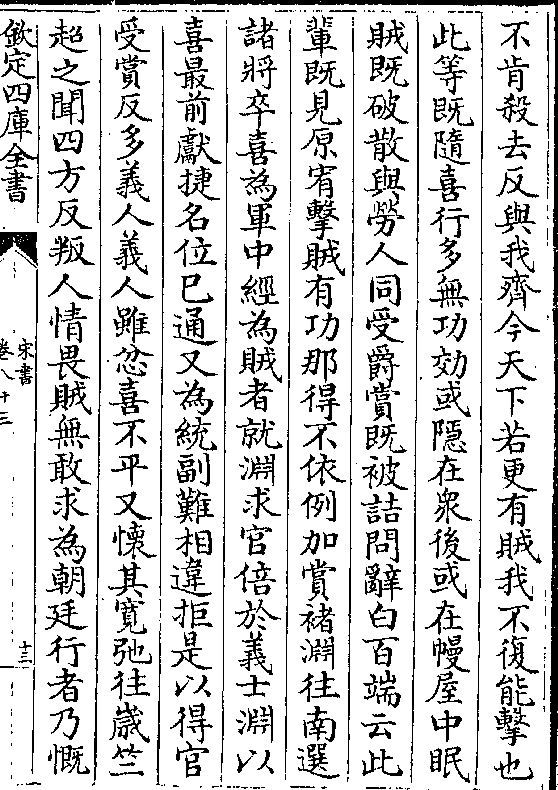 不肯殺去反與我齊今天下若更有賊我不復能擊也
此等既隨喜行多無功効或隱在衆後或在幔屋中眠
賊既破散與勞人同受爵賞既被詰問辭白百端云此
輩既見原宥擊賊有功那得不依例加賞褚淵往南選
諸將卒喜為軍中經為賊者就淵求官倍於義士淵以
喜最前獻捷名位已通又為統副難相違拒是以得官
受賞反多義人義人雖忿喜不平又懷其寛弛往歲竺
超之聞四方反叛人情畏賊無敢求為朝廷行者乃慨
欽定四庫全書
宋書
卷八十三
十三